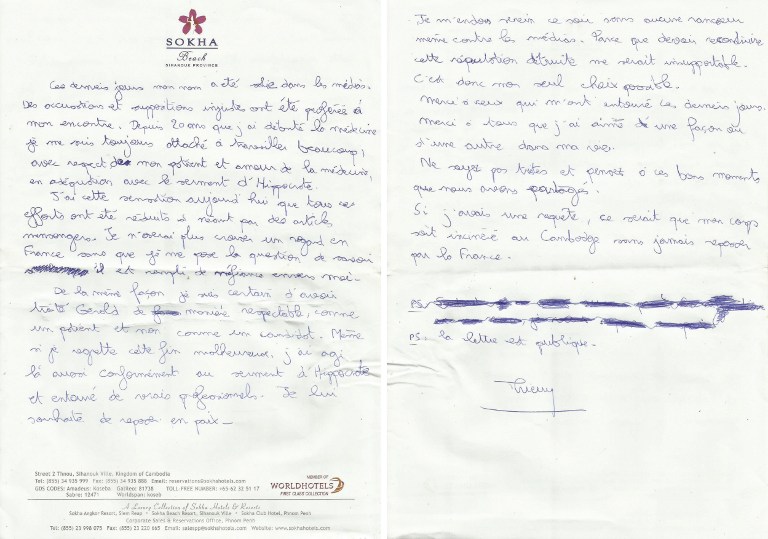 SOKHA
Beach
SIHANOUK PROVINCE
Ces derniers jours mon nom a été sali dans les médias.
Des accusations et suppositions injustes ont été proférées à
mon encontre. Depuis 20 ans que j'ai débuté la médecine
je me suis toujours attaché à travailler beaucoup,
avec respect de mon patient et amour de la médecine,
en adéquation avec le serment d'Hippocrate.
J'ai cette sensation aujourd'hui que tous ces
efforts ont été réduits à néant par des articles
mensongers. Je n'oserai plus croiser un regard en
France sans que je me pose la question de savoir
il est rempli de méfiance envers moi.
De la même façon je suis certain d'avoir
traité Gérald de manière respectable, comme
un patient et non comme un candidat. Même
si je regrette cette fin malheureuse, j'ai agi
là aussi conformément au serment d'Hippocrate
et entouré de vrais professionnels. Je lui
souhaite de reposer en paix_
Street 2 Thnou, Sihanouk Ville, Kingdom of Cambodia
Tel: (855) 34 935 999 Fax: (855) 34 935 888 Email: reservations@sokhahotels.com
GDS CODES: Amadeus: Galileo: 81738 TOLL-FREE NUMBER: +65 62 32 51 17
Sabre: 12471 Worldspan:
MEMBER OF
WORLDHOTELS
FIRST CLASS COLLECTION
A Luxury Collection of Sokha Hotels & Resorts
Sokha Angkor Resort, Siem Reap • Sokha Beach Resort, Sihanouk Ville • Sokha Club Hotel, Phnom Penh
Corporate Sales & Reservations Office, Phnom Penh
Website: www.sokhahotels.com
Je m'endors serein ce soir sans aucune rancoeur
même contre les médias. Parce que devoir reconstruire
cette réputation détruite me serait insupportable.
C'est donc mon seul choix possible.
Merci à ceux qui m'ont entouré ces derniers jours.
Merci à tous que j'ai aimé de une façon ou
d'une autre dans ma vie.
Ne soyez pas tristes et pensez à ces bons moments
que nous avons partagés.
Si j'avais une requête, ce serait que mon corps
soit incinéré au Cambodge sans jamais repasser
par la France.
PS:
PS: la lettre est publique.
Thierry